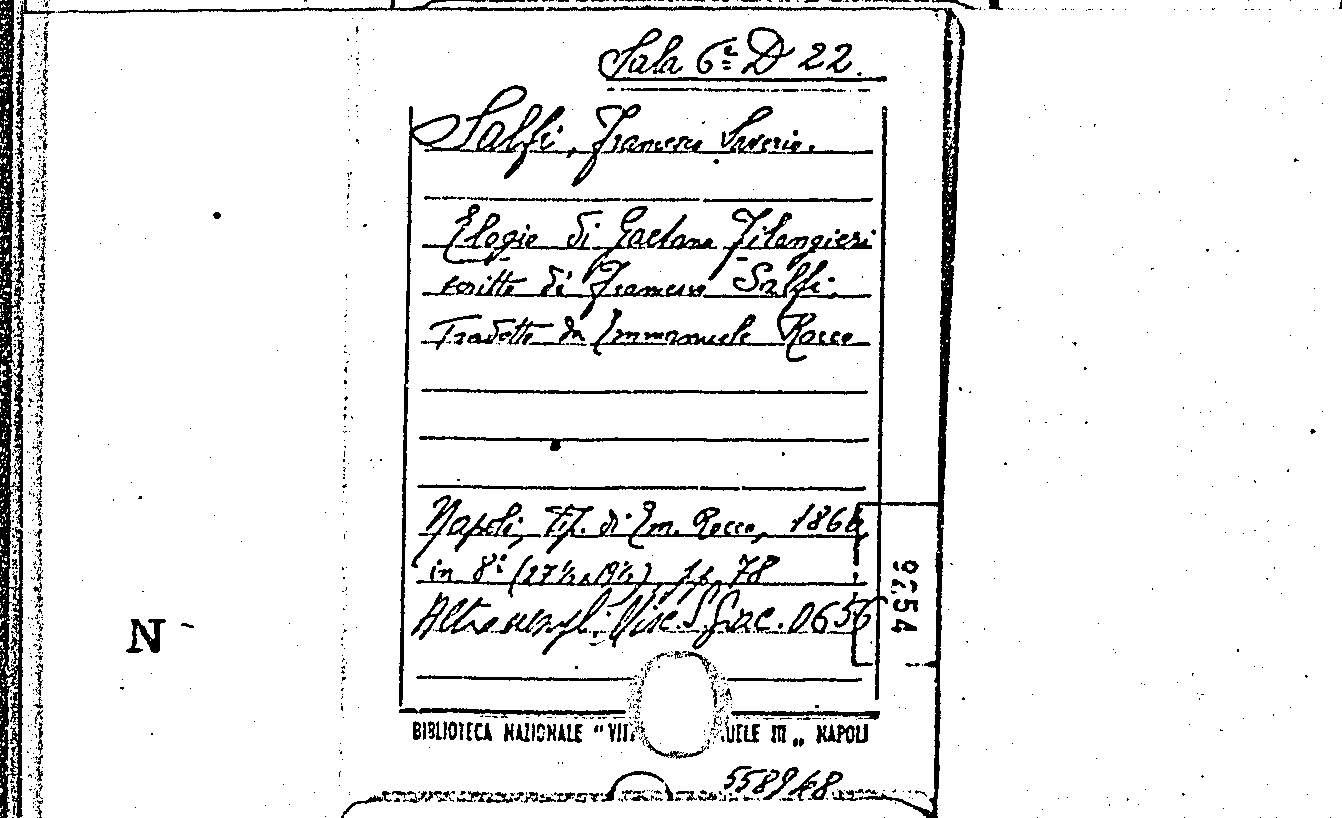 Sala 6ª D 22.
Salfi, Francesco Saverio.
Elogio di Gaetano Filangieri
scritto di Francesco Salfi.
Tradotto da Emmanuele Rocco
Napoli, Tip. di Em. Rocco, 186
in 8º (27½ x 19½) pp. 78
Altro esempl: Misc. S. Grac. 0656
9254
N
BIBLIOTECA NAZIONALE "VITT UELE III „ NAPOLI
558948